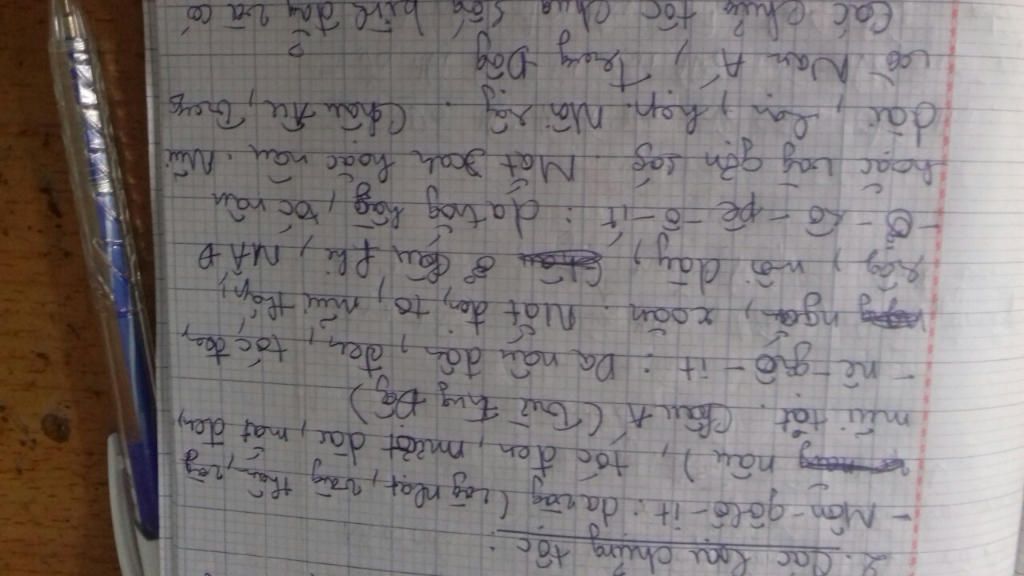 2. Các loại chủng tộc:
- Môn-gô-lô-it: da vàg (vàg nhạt, vàg thẫm, vàg
nâu), tóc đen, mượt dài, mắt đen,
mũi tẹt. Châu Á (Trừ Trug Đôg)
- nê-grô-it: Da nâu đậm, đen, tóc đen,
ngắn, xoăn. Mắt đen, to, mũi thấp,
rộg, môi dày, Châu Phi, NAĐ
- Ơ-rô-pê-ô-it: da trắg hồg, tóc nâu
hoặc vàg gợn sóg. Mắt xanh hoặc nâu. Mũi
dài, hẹp. Môi rộg. Châu Âu, Trug
và Nam Á, Trung Đôg
Các chủng tộc chug sốg bình đẳg và có